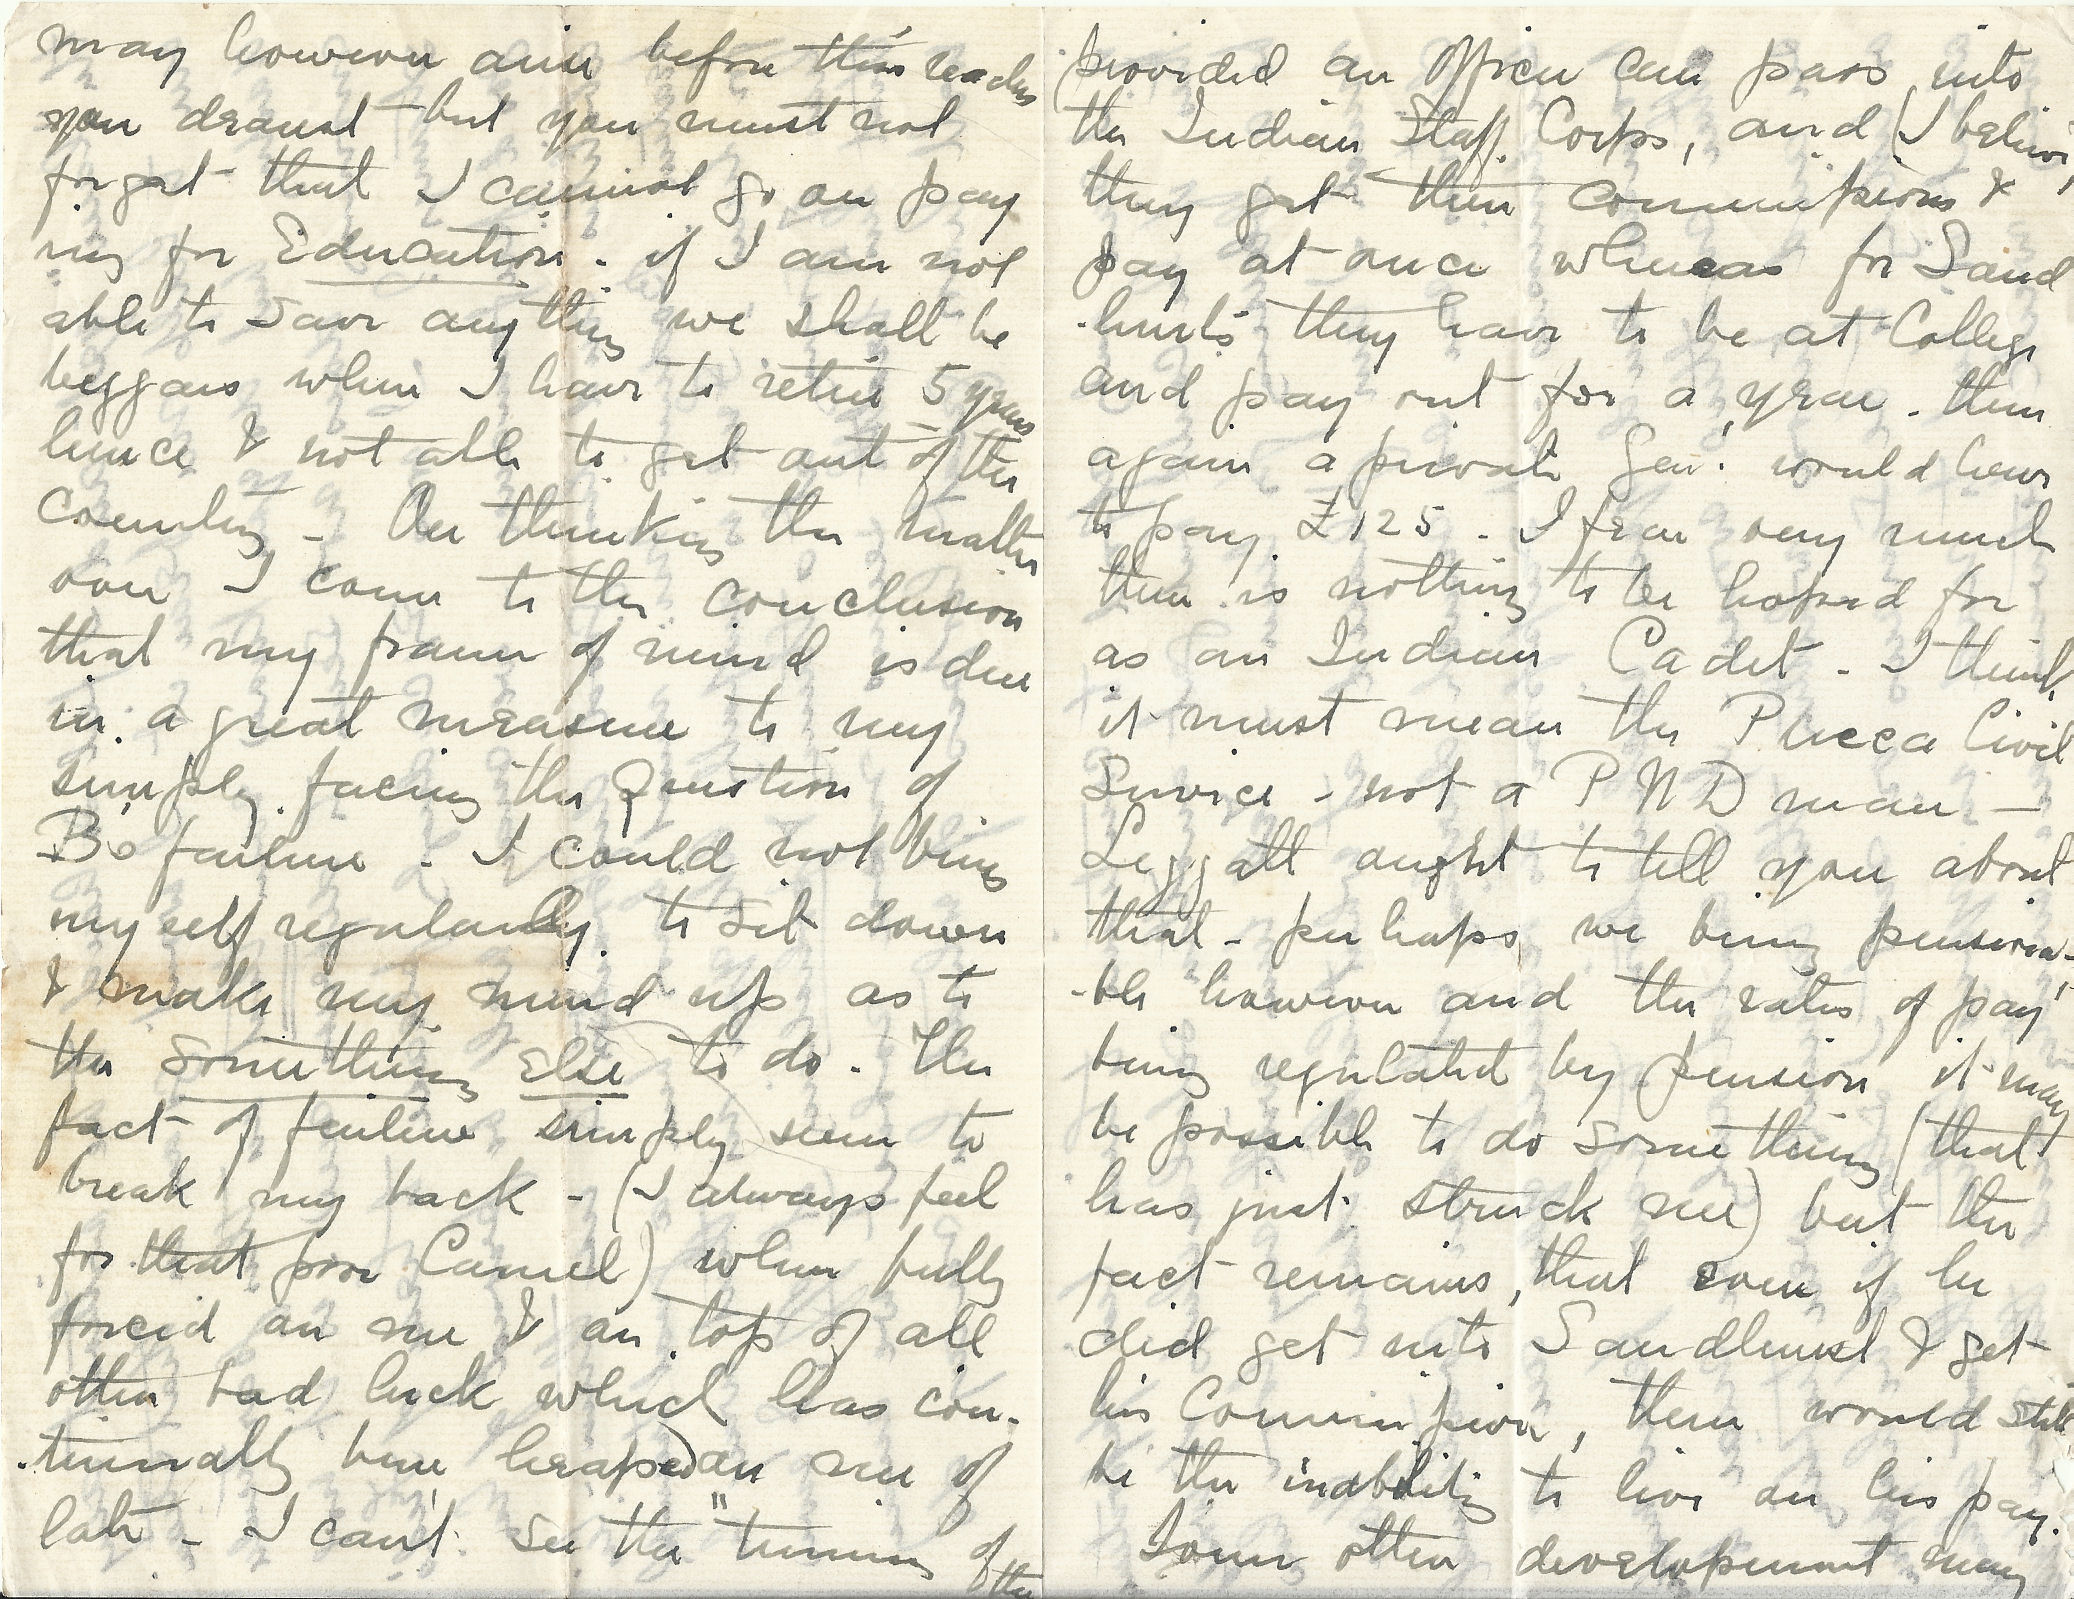 may however arise before this reaches
you dearest but you must not
forget that I cannot go on pay
ing for Education - if I am not
able to save anything we shall be
beggars when I have to retire 5 years
hence & not able to get out of the
Country - On thinking the matter
over I come to the conclusion
that my frame of mind is due
in a great measure to my
simply facing the question of
B's failure - I could not bring
myself regularly to sit down
& make my mind up as to
the something else to do. The
fact of failure simply seem to
break my back - (I always feel
for that poor Camel) when fully
forced on me & on top of all
other bad luck which has con-
-tinually been heaped on me of
late - I can't see the "turning of the
provided an Officer can pass into
the Indian Staff Corps, and (I believe)
they get their commissions &
pay at once whereas for Sand
-hurst they have to be at College
and pay out for a year - then
again a private Gen: would have
to pay £125 - I fear very much
there is nothing to be hoped for
as an Indian Cadet - I think
it must mean the Pucca Civil
Service - not a PWD man -
Leggatt ought to tell you about
that - perhaps we being pensiona-
-ble however and the rates of pay
being regulated by pension it may
be possible to do something (that
has just struck me) but the
fact remains, that even if he
did get into Sandhurst & get
his Commission, there would still
be the inability to live on his pay.
Some other development may